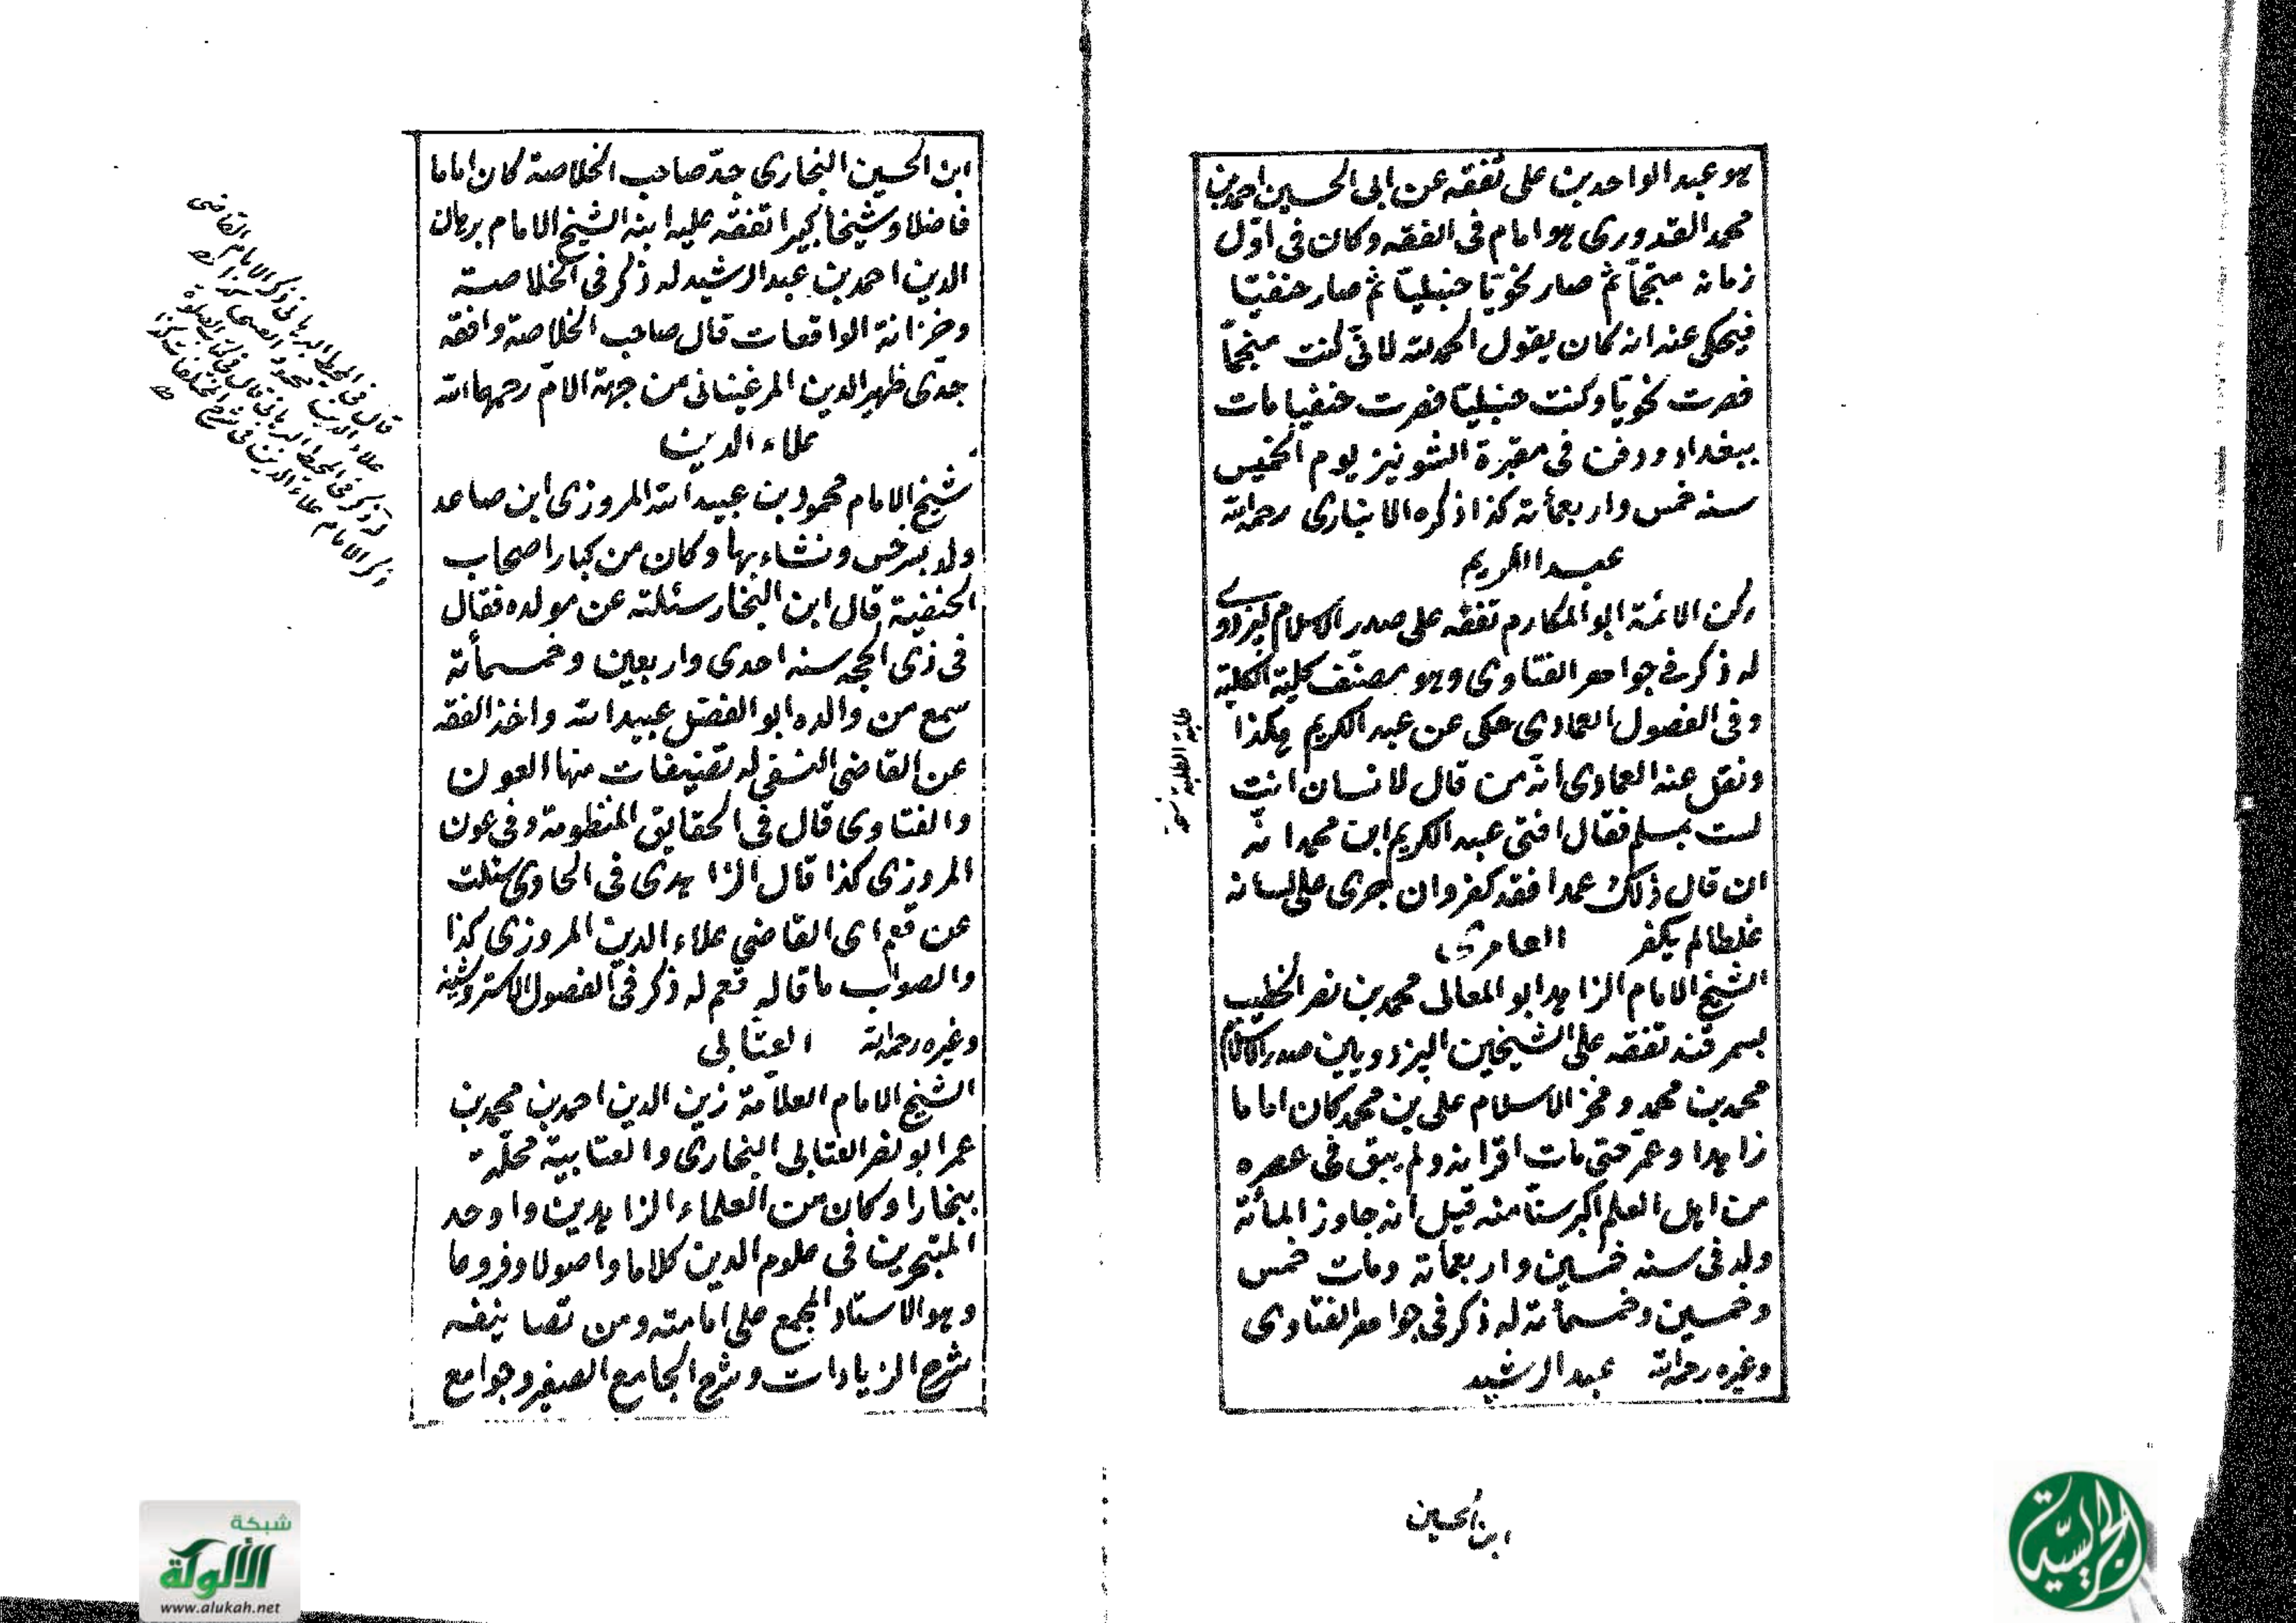 هو عبد الواحد بن على تفقه عن ابى الحسين احمد بن
محمد القدورى هو امام فى الفقه وكان فى اوّل
زمانه منجّماً ثم صار نحويّا حنبليّا ثم صار حنفيّا
فيحكى عنه انه كان يقول الحمد لله لانّى كنت منجّماً
فصرت نحويّا وكنت حنبليّا فصرت حنفيا مات
ببغداد ودفن فى مقبرة الشونيز يوم الخميس
سنه خمس واربعمائة كذا ذكره الانبارى رحمه الله
عبد الكريم
ركن الائمة ابو المكارم تفقّه على صدر الاسلام البزدوى
له ذكر فى جواهر الفتاوى وهو مصنّف كلية الكلية
طلبة الطلبة نسخه
وفى الفصول العمادى حكى عن عبد الكريم هكذا
ونقل عنه العمادى انّه من قال لانسان انت
لست بمسلم فقال افتى عبد الكريم ابن محمد انّه
ان قال ذلك عمدا فقد كفر وان جرى على لسانه
غلطا لم يكفر العامرى
الشيخ الامام الزاهد ابو المعالى محمد بن نصر الخطيب
بسمرقند تفقه على الشيخين البزدويين صدر الاسلام
محمد بن محمد وفخر الاسلام على بن محمد كان اماما
زاهدا وعمّر حتى مات اقرانه ولم يبق فى عصره
من اهل العلم اكبر سنّا منه قيل انه جاوز المائة
ولد فى سنه خمسين واربعمائة ومات خمس
وخمسين وخمسمائة له ذكر فى جواهر الفتاوى
وغيره رحمه الله عبد الرشيد
ابن الحسين
ابن الحسين البخارى جدّ صاحب الخلاصة كان اماما
فاضلا وشيخا كبيرا تفقّه عليه ابنه الشيخ الامام برهان
الدين احمد بن عبد الرشيد له ذكر فى الخلاصة
وخزانة الواقعات قال صاحب الخلاصة وافقه
جدّى ظهير الدين المرغينانى من جهة الامّ رحمهما الله
علاء الدين
شيخ الامام محمود بن عبيد الله المروزى ابن صاعد
ولد بسرخس ونشاء بها وكان من كبار اصحاب
الحنفية قال ابن النجار سئلته عن مولده فقال
فى ذى الحجه سنه احدى واربعين وخمسمائة
سمع من والده ابو الفضل عبيد الله واخذ الفقه
عن القاضى النسفى له تصنيفات منها العون
والفتاوى قال فى الحقايق المنظومة وفى عون
المروزى كذا قال الزاهدى فى الحاوى سئلت
عن قعم اى القاضى علاء الدين المروزى كذا
والصواب ما قاله قعم له ذكر فى الفصول الاستروشنيه
وغيره رحمه الله العتّابى
الشيخ الامام العلاّمة زين الدين احمد بن محمد بن
عمر ابو نصر العتابى البخارى والعتابية محلّة
ببخارا وكان من العلماء الزاهدين واوحد
المتبحّرين فى علوم الدين كلاما واصولا وفروعا
وهو الاستاد المجمع على امامته ومن تصانيفه
شرح الزيادات وشرح الجامع الصغير وجوامع
قال فى المحيط البرهانى ذكر الامام القاضى
علاء الدين محمود
وذكر فى المحيط البرهانى قال فى كتاب الصلاة
ذكر الامام علاء الدين فى شرح المختلفات
شبكة
الألوكة
www.alukah.net